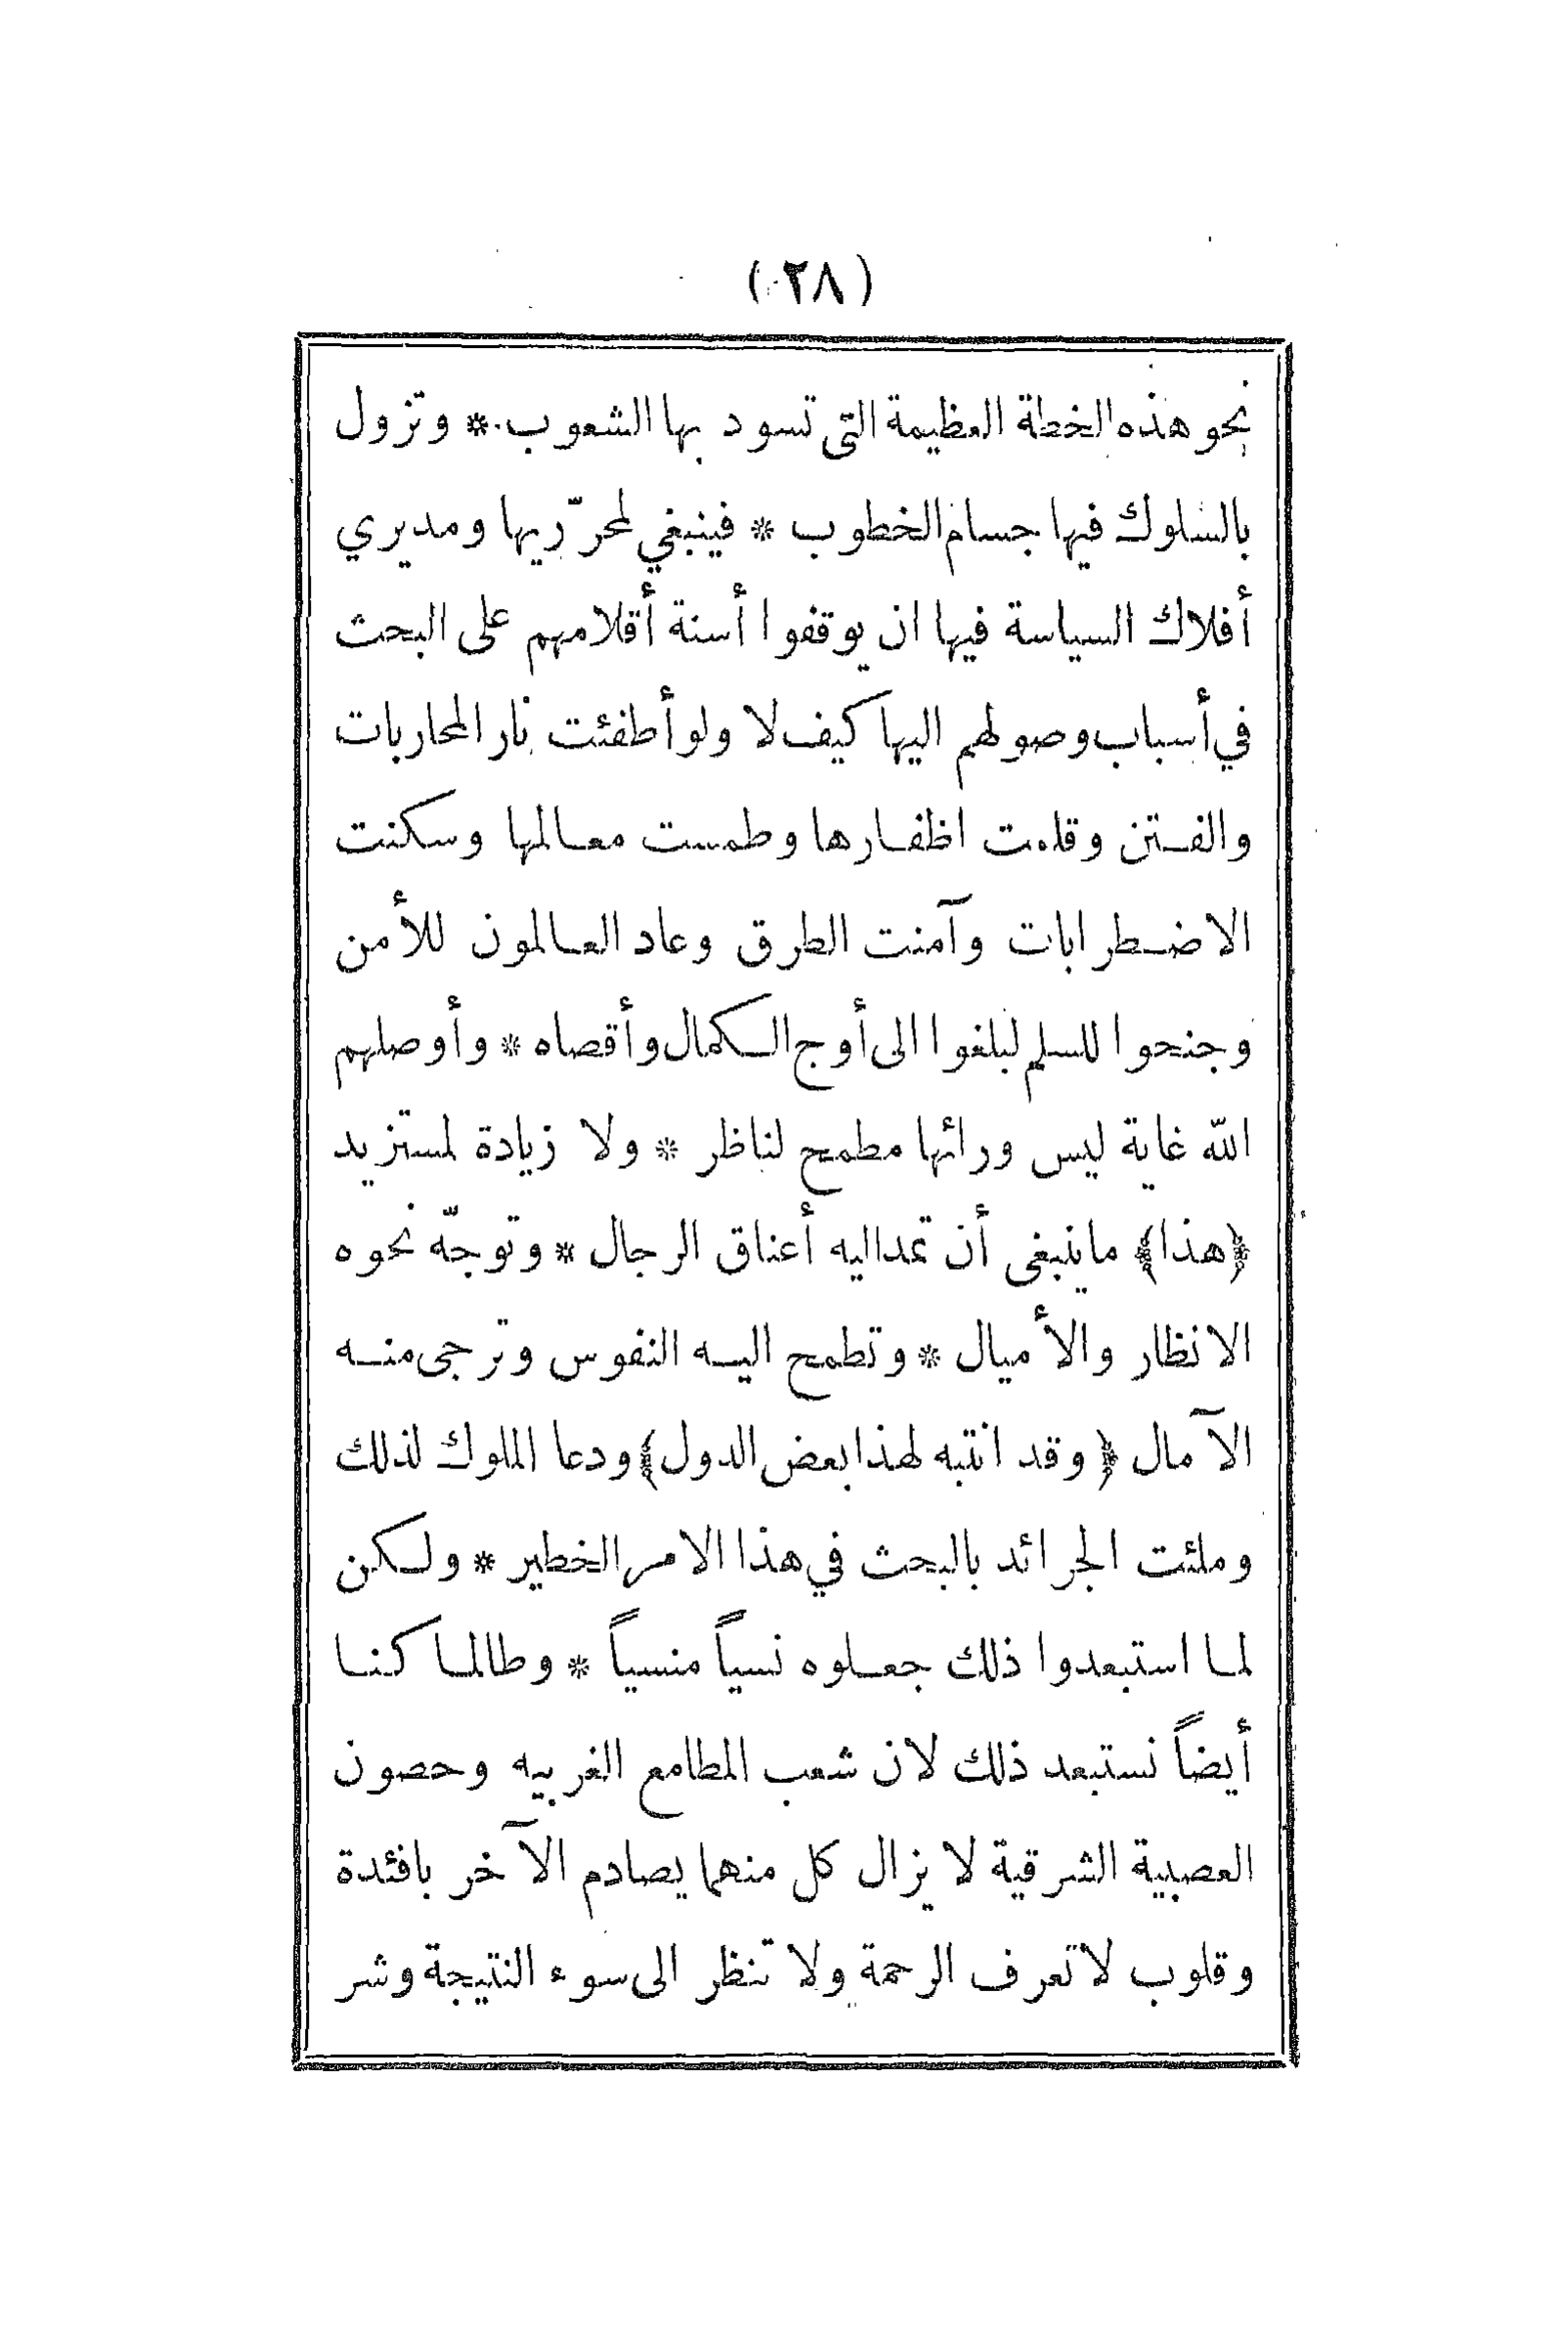 (٢٨)
نحو هذه الخطة العظيمة التى تسود بها الشعوب * وتزول
بالسلوك فيها جسام الخطوب * فينبغي لمحرّريها ومديري
أفلاك السياسة فيها ان يوقفوا أسنة أقلامهم على البحث
في أسباب وصولهم اليها كيف لا ولو أطفئت نار المحاربات
والفتن وقلمت اظفارها وطمست معالمها وسكنت
الاضطرابات وآمنت الطرق وعاد العالمون للأمن
وجنحوا للسلم لبلغوا الى أوج الكمال وأقصاه * وأوصلهم
الله غاية ليس ورائها مطمح لناظر * ولا زيادة لمستزيد
﴿هذا﴾ ماينبغى أن تمد اليه أعناق الرجال * وتوجّه نحوه
الانظار والأميال * وتطمح اليه النفوس وترجى منه
الآمال ﴿وقد انتبه لهذا بعض الدول﴾ ودعا الملوك لذلك
وملئت الجرائد بالبحث في هذا الامر الخطير * ولكن
لما استبعدوا ذلك جعلوه نسياً منسياً * وطالما كنا
أيضاً نستبعد ذلك لان شعب المطامع الغربيه وحصون
العصبية الشرقية لا يزال كل منهما يصادم الآخر بافئدة
وقلوب لا تعرف الرحمة ولا تنظر الى سوء النتيجة وشر